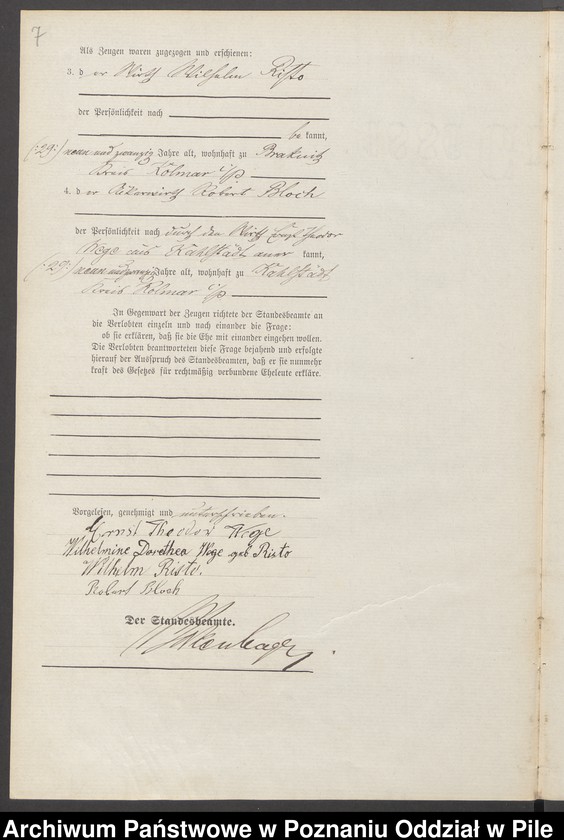 7
Als Zeugen waren zugezogen und erschienen:
3. d er Wirth Wilhelm Risto
der Persönlichkeit nach
be kannt,
(:29:) neun und zwanzig Jahre alt, wohnhaft zu
Kreis Kolmar i/P
4. d er Ackerwirth Robert Bloch
der Persönlichkeit nach durch den Wirth Ernst Theodor
Wege aus Kahlstädt aner kannt,
neun und zwanzig Jahre alt, wohnhaft zu Kahlstädt
Kreis Kolmar i/P
In Gegenwart der Zeugen richtete der Standesbeamte an
die Verlobten einzeln und nach einander die Frage:
ob sie erklären, daß sie die Ehe mit einander eingehen wollen.
Die Verlobten beantworteten diese Frage bejahend und erfolgte
hierauf der Ausspruch des Standesbeamten, daß er sie nunmehr
kraft des Gesetzes für rechtmäßig verbundene Eheleute erkläre.
Vorgelesen, genehmigt und unterschrieben.
Ernst Theodor Wege
Wilhelmine Dorothea Wege geb Risto
Wilhelm Risto.
Robert Bloch
Der Standesbeamte.
Archiwum Państwowe w Poznaniu Oddział w Pile